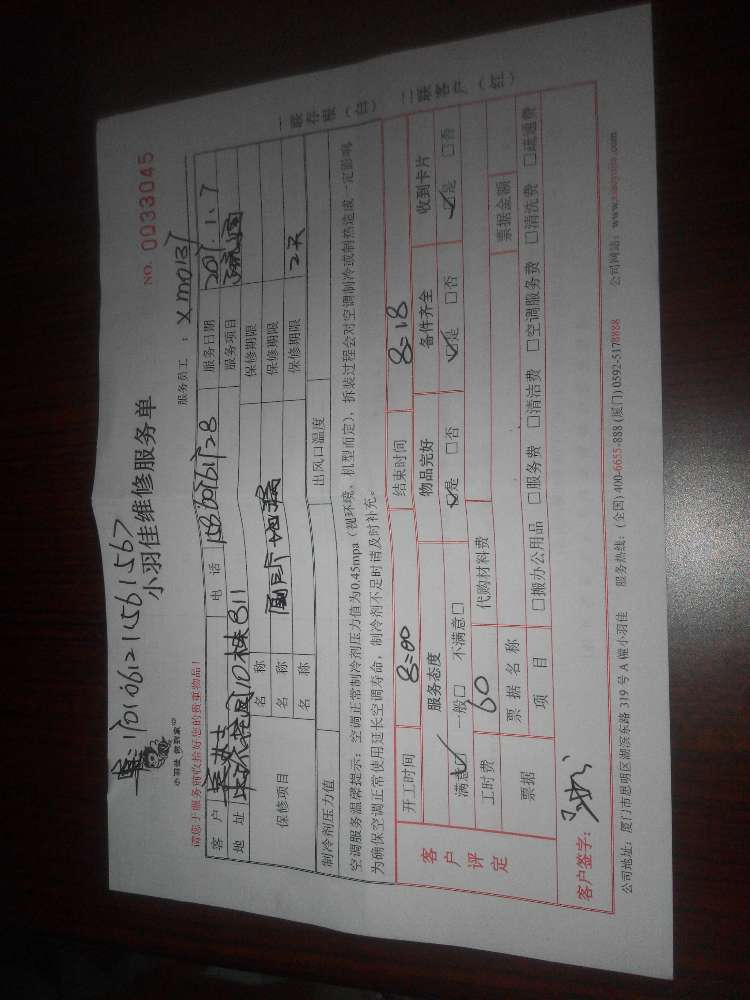 小羽佳 您到家
小羽佳维修服务单
NO. 0033045
请您于服务前收拾好您的贵重物品!
服务员工 : Xm0137
客 户
电 话
服务日期
地 址
服务项目
保修项目
名 称
保修期限
名 称
保修期限
名 称
保修期限 2天
制冷剂压力值
出风口温度
空调服务温馨提示:空调正常制冷剂压力值为0.45mpa(视环境、机型而定),拆装过程会对空调制冷或制热造成一定影响
为确保空调正常使用延长空调寿命,制冷剂不足时请及时补充。
一联存根(白) 二联客户(红)
客户评定
开工时间 8:00 结束时间 8:18
服务态度 物品完好 备件齐全 收到卡片
满意☑ 一般□ 不满意□ ☑是 □否 ☑是 □否 ☑是 □否
工时费 60 代购材料费
票据 票据名称 票据金额
项 目 □搬办公用品 □服务费 □清洁费 □空调服务费 □清洗费 □疏通费
客户签字:
公司地址:厦门市思明区湖滨东路 319 号 A 幢小羽佳 服务热线:(全国)400-6655-888 (厦门)0592-5178888 公司网站:www.xiaoyujia.com